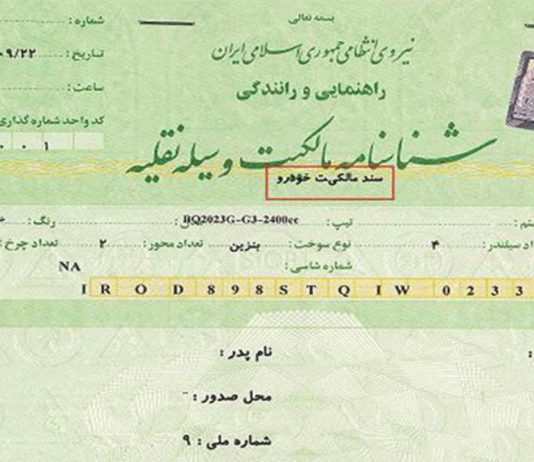 بسمه تعالی
شماره :
نیروی انتظامی جمهوری اسلامی ایران
تاریخ : ۰۹/۲۲
راهنمایی و رانندگی
ساعت :
کد واحد شماره گذاری
۰ ۰ ۱
شناسنامه مالکیت وسیله نقلیه
سند مالکیت خودرو
تیپ : BQ2023G-G3-2400cc رنگ :
سیلندر : ۴ نوع سوخت : بنزین تعداد محور : ۲ تعداد چرخ :
شماره شاسی :
NA
IROD898STQIW0233
نام پدر :
محل صدور : -
شماره ملی : ۹